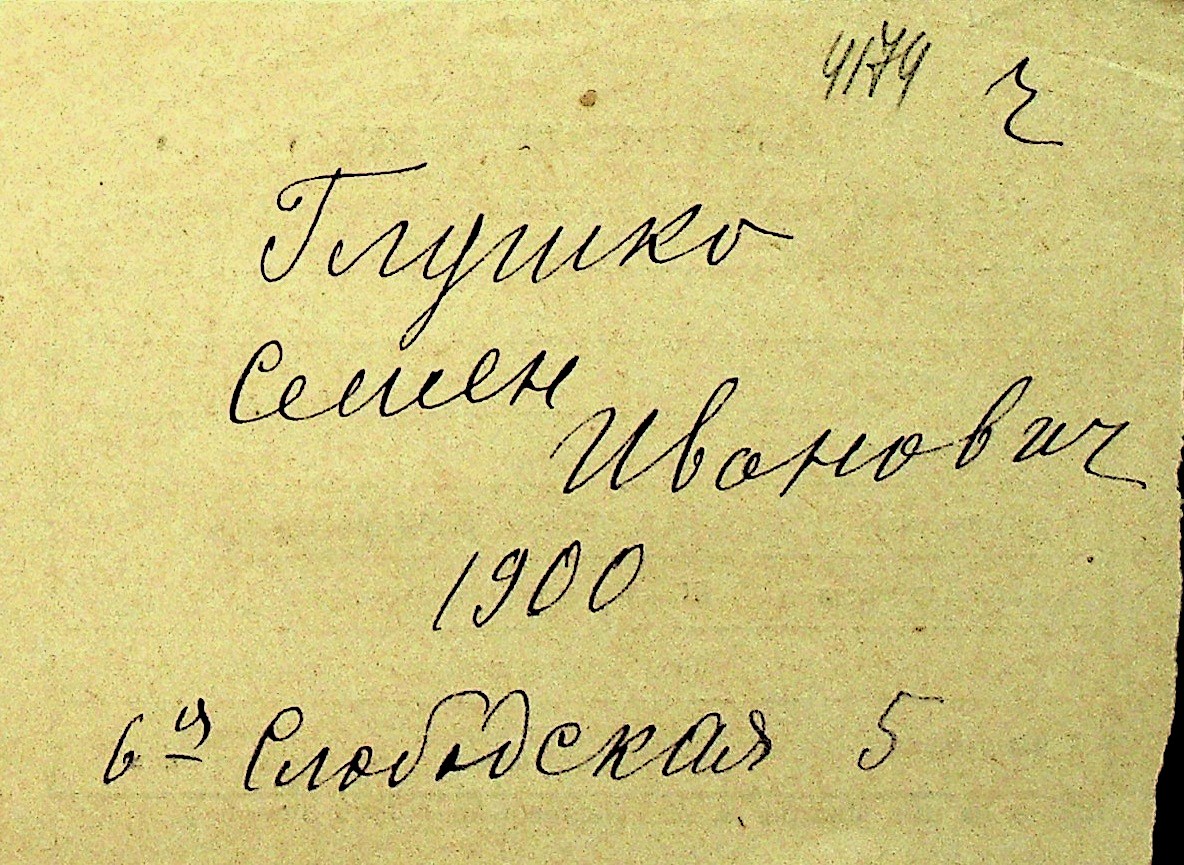 4174 ч
Глушко
Семен
Иванович
1900
6я Слободская 5